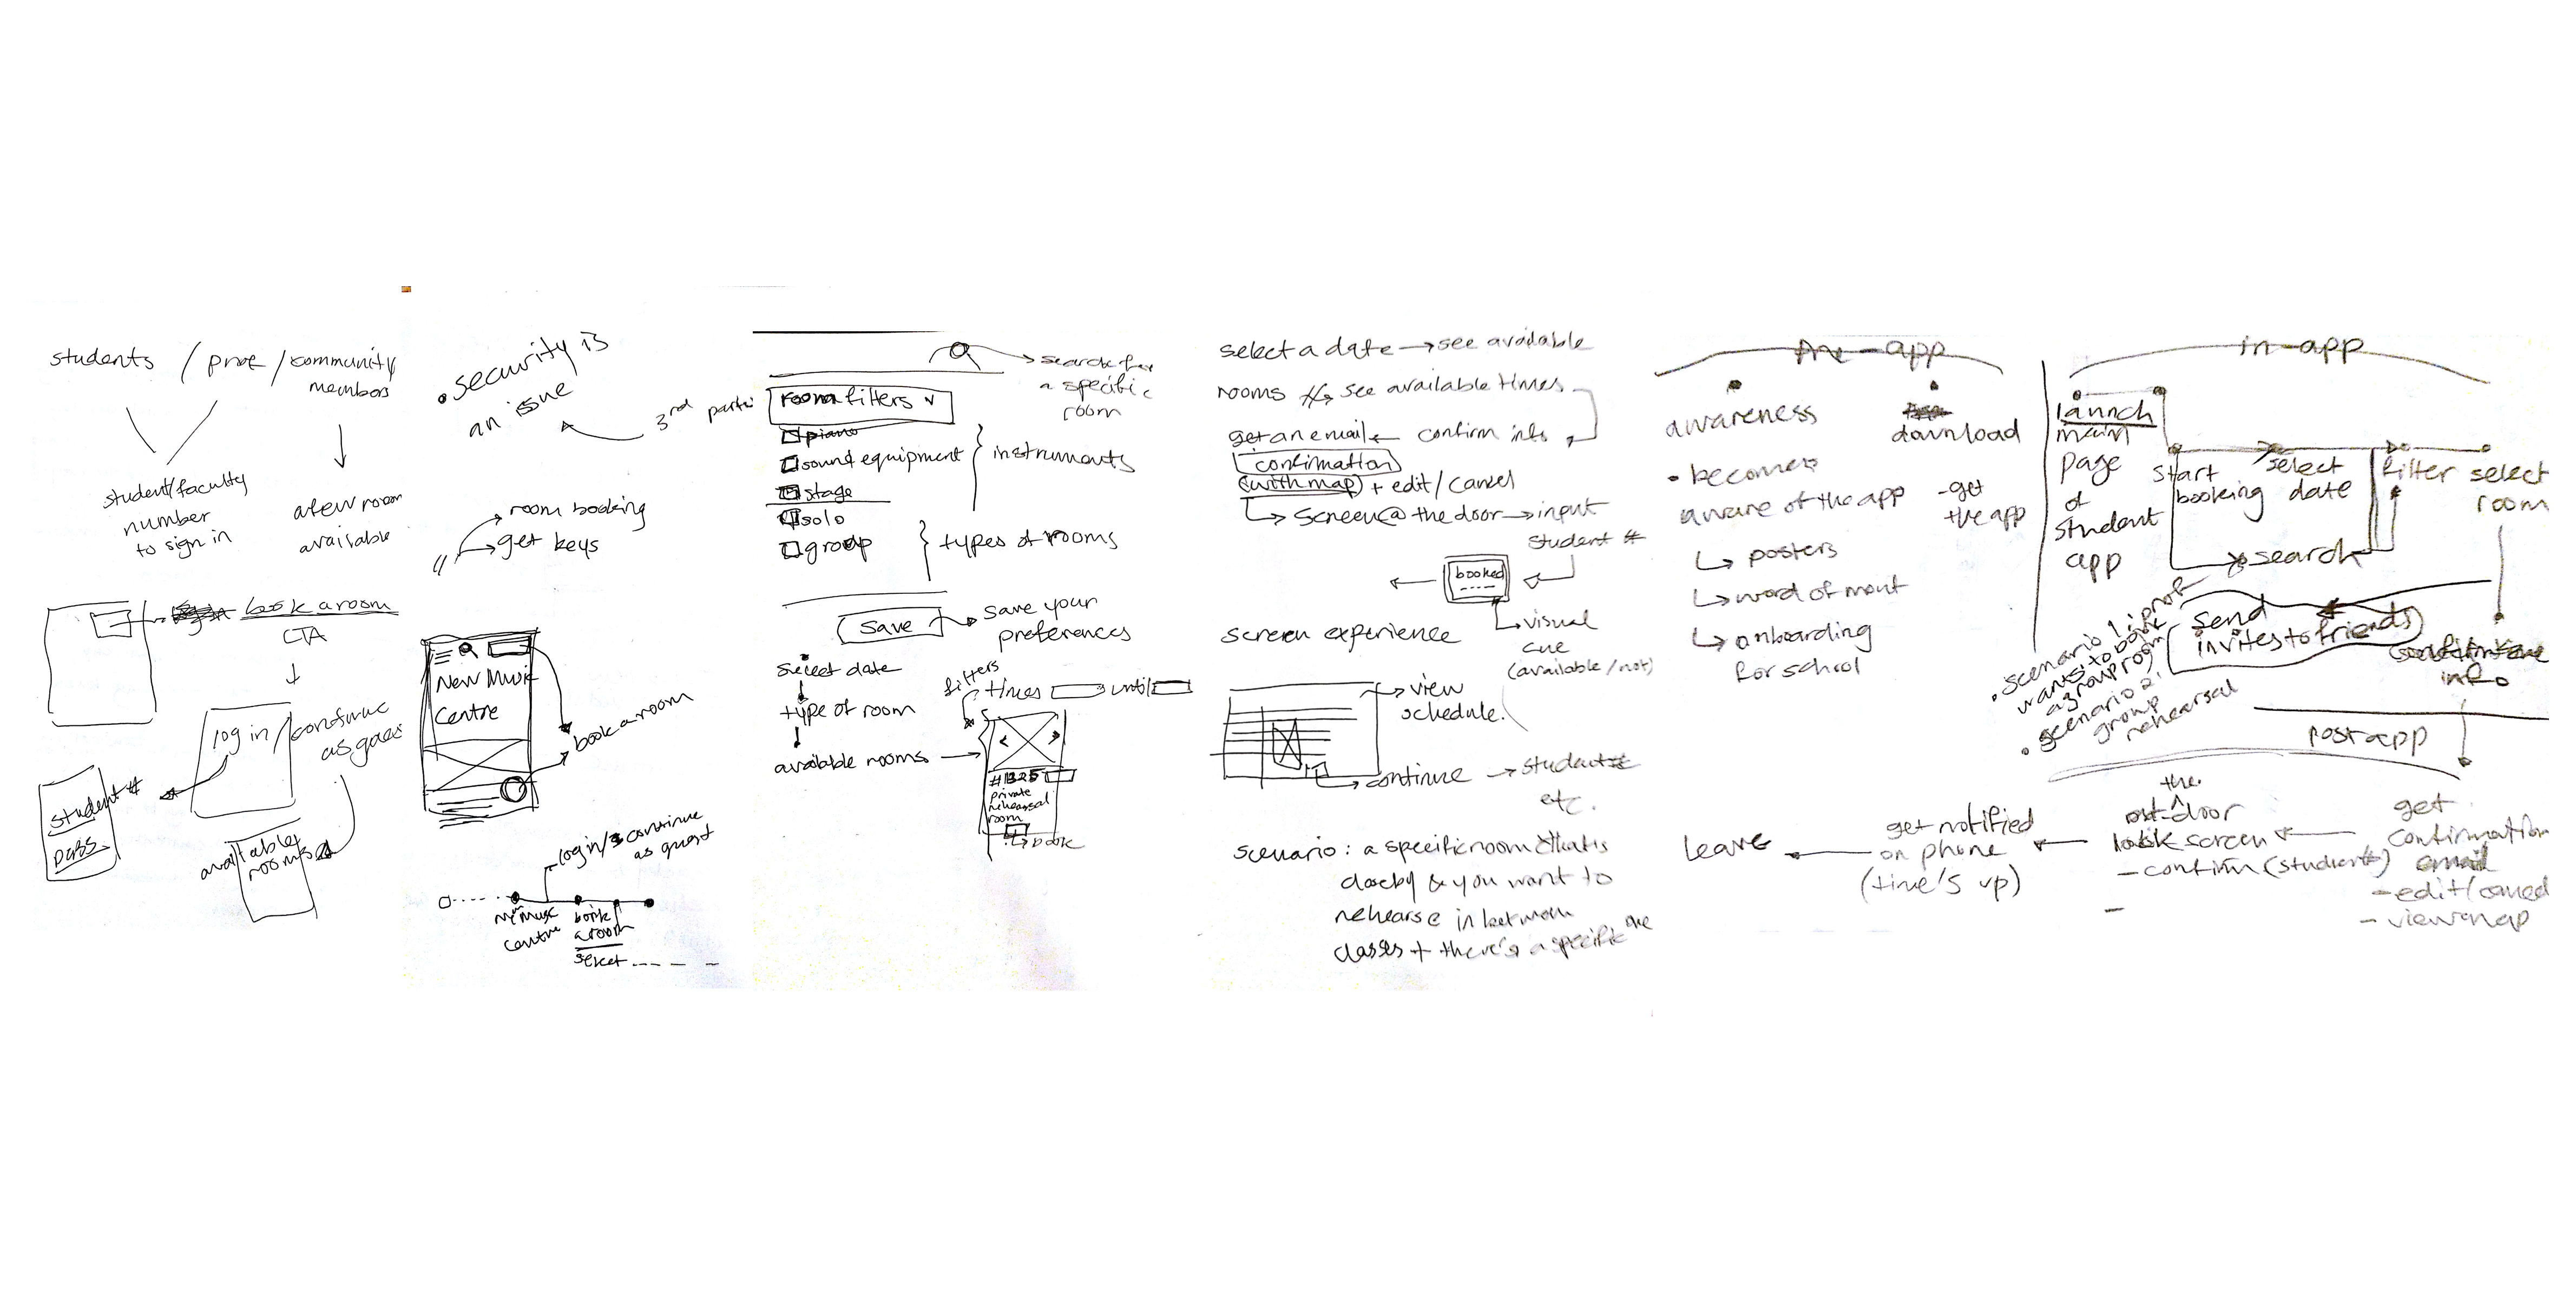 students / prof / community
members
student/faculty
number
to sign in
a few room
available
book a room
CTA
log in / continue
as gues
student #
pass
available
rooms
• security is
an issue
3rd parti
room booking
get keys
New Music
Centre
book a room
login/continue
as guest
music
centre
book
a room
select
search for
a specific
room
room filters v
piano
sound equipment
stage
instruments
solo
group
types of rooms
save
save your
preferences
select date
type of room
available rooms
filters
times
until
#1325
private
rehearsal
room
book
select a date → see available
rooms → see available times
get an email ← confirm info
confirmation
(with map) + edit/cancel
→ screen @ the door → input
student #
booked
visual
cue
(available/not)
screen experience
view
schedule.
continue → student #
etc.
scenario: a specific room that's
closeby & you want to
rehearse in between
classes + there's a specific one
Pre-app
awareness
• becomes
aware of the app
↳ posters
↳ word of mout
↳ onboarding
for school
download
- get
the app
in-app
launch
main
page
of
student
app
start
booking
select
date
filter
select
room
search
send
invites to friends
info
• scenario 1: prof
wants to book
a group room
• scenario 2:
group
rehearsal
post app
get
confirmation
email
- edit/cancel
- view map
the
door
screen
- confirm (student #)
-
get notified
on phone
(time's up)
leave